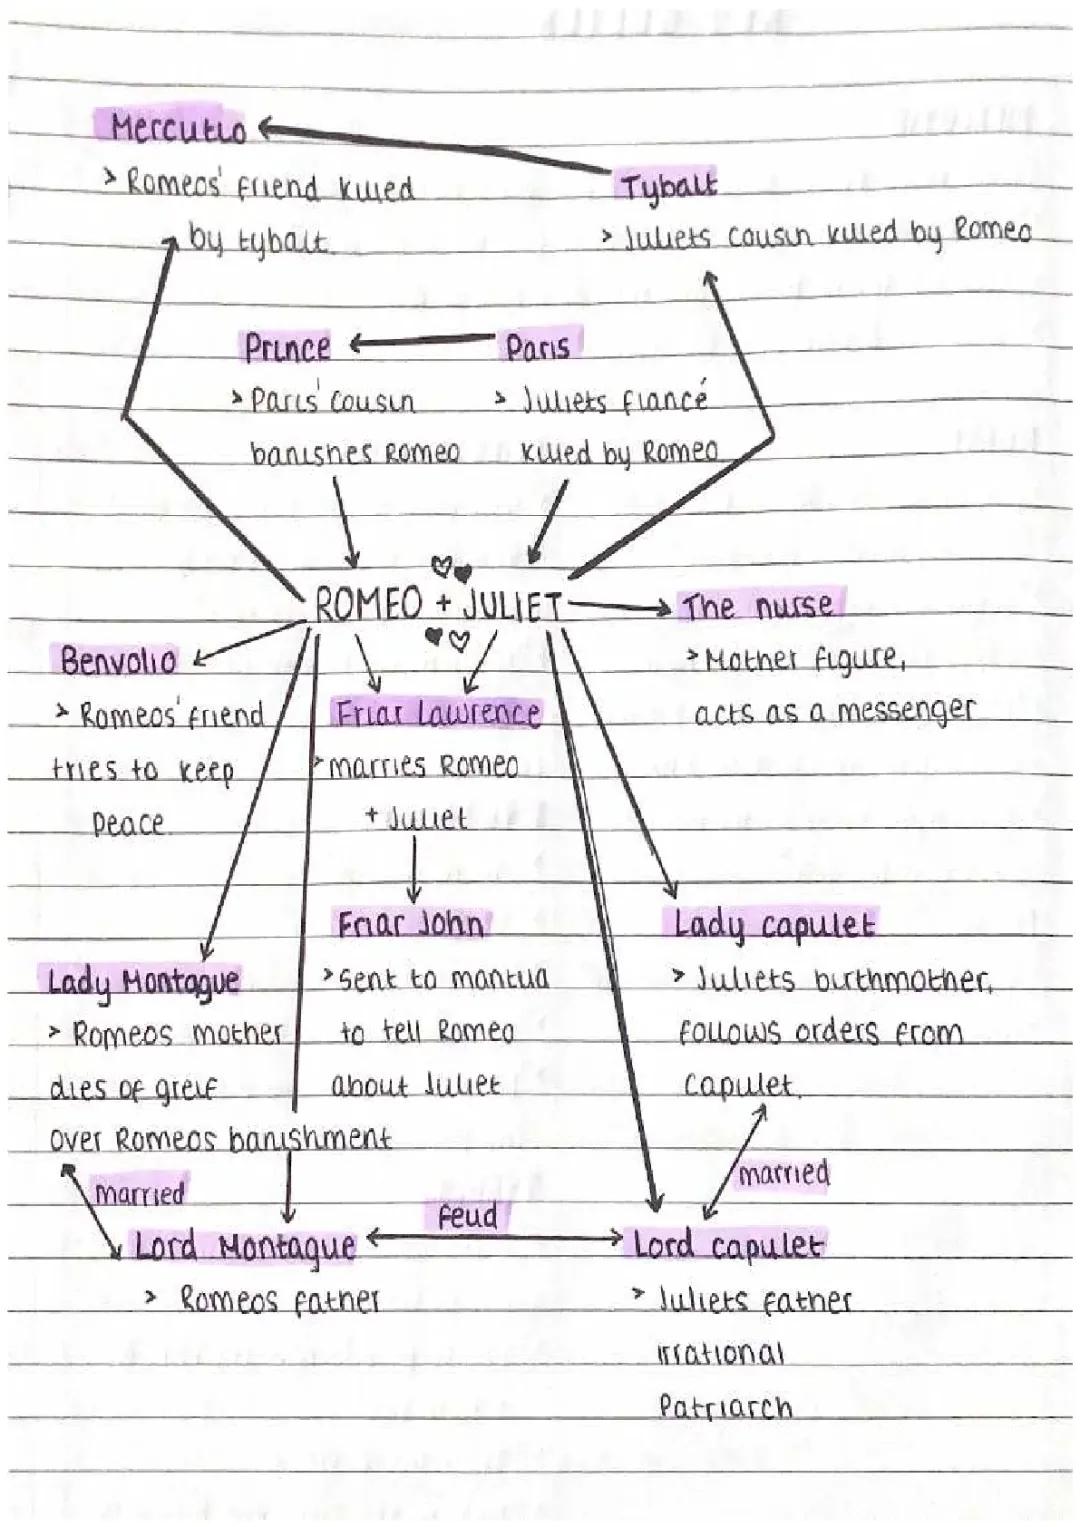 Mercutio
> Romeos' friend killed
by tybalt.
Tybalt
> Juliets cousin killed by Romeo
Prince
> Paris' cousin
banishes Romeo
Paris
> Juliets fiancé
killed by Romeo
ROMEO + JULIET
The nurse
> Mother figure,
acts as a messenger
Benvolio
> Romeos' friend
tries to keep
peace.
Friar Lawrence
> marries Romeo
+ Juliet
Friar John
> Sent to mantua
to tell Romeo
about Juliet
Lady capulet
> Juliets birthmother,
follows orders from
Capulet.
Lady Montague
> Romeos mother
dies of greif
over Romeos banishment
married
married
feud
Lord Montague
> Romeos father
Lord capulet
> Juliets father
irrational
Patriarch